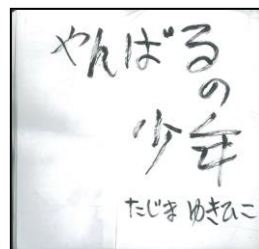 やんばる
の
少年
たじま ゆきひこ